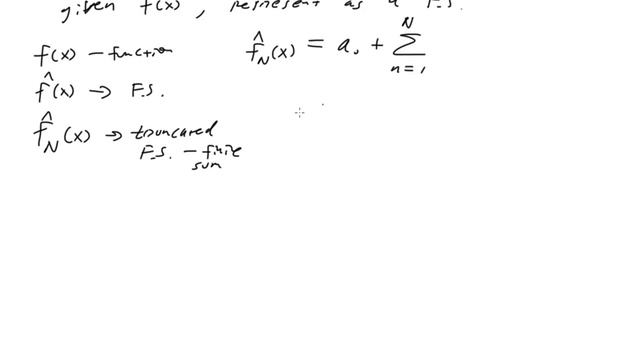 given f(x), represent as a F.S.
f(x) – function
f̂(x) → F.S.
f̂_N(x) → truncared
F.S. – finite
sum
f̂_N(x) = a₀ + ∑_{n=1}^{N}